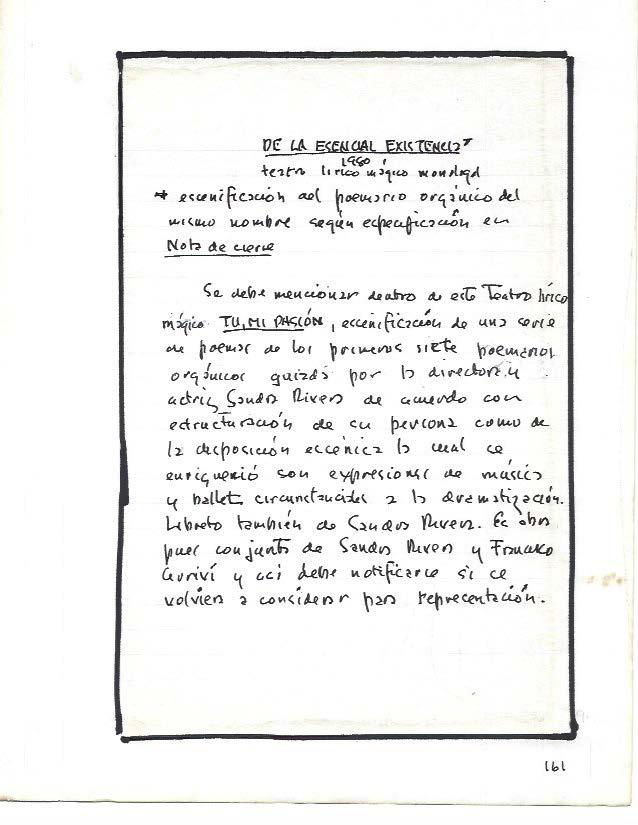 DE LA ESENCIAL EXISTENCIA*
1980
teatro lírico mágico monologal
* escenificación del poemario orgánico del
mismo nombre según especificación en
Nota de cierre
Se debe mencionar dentro de este Teatro lírico
mágico TU, MI PASIÓN, escenificación de una serie
de poemas de los primeros siete poemarios
orgánicos guizada por la directora y
actriz Sandra Rivera de acuerdo con
estructuración de su persona como de
la disposición escénica la cual se
enriqueció con expresiones de música
y ballet circunstanciales a la dramatización.
Libreto también de Sandra Rivera. Es obra
pues conjunta de Sandra Rivera y Francisco
y así debe notificarse si se
volviera a considerar para representación.
161